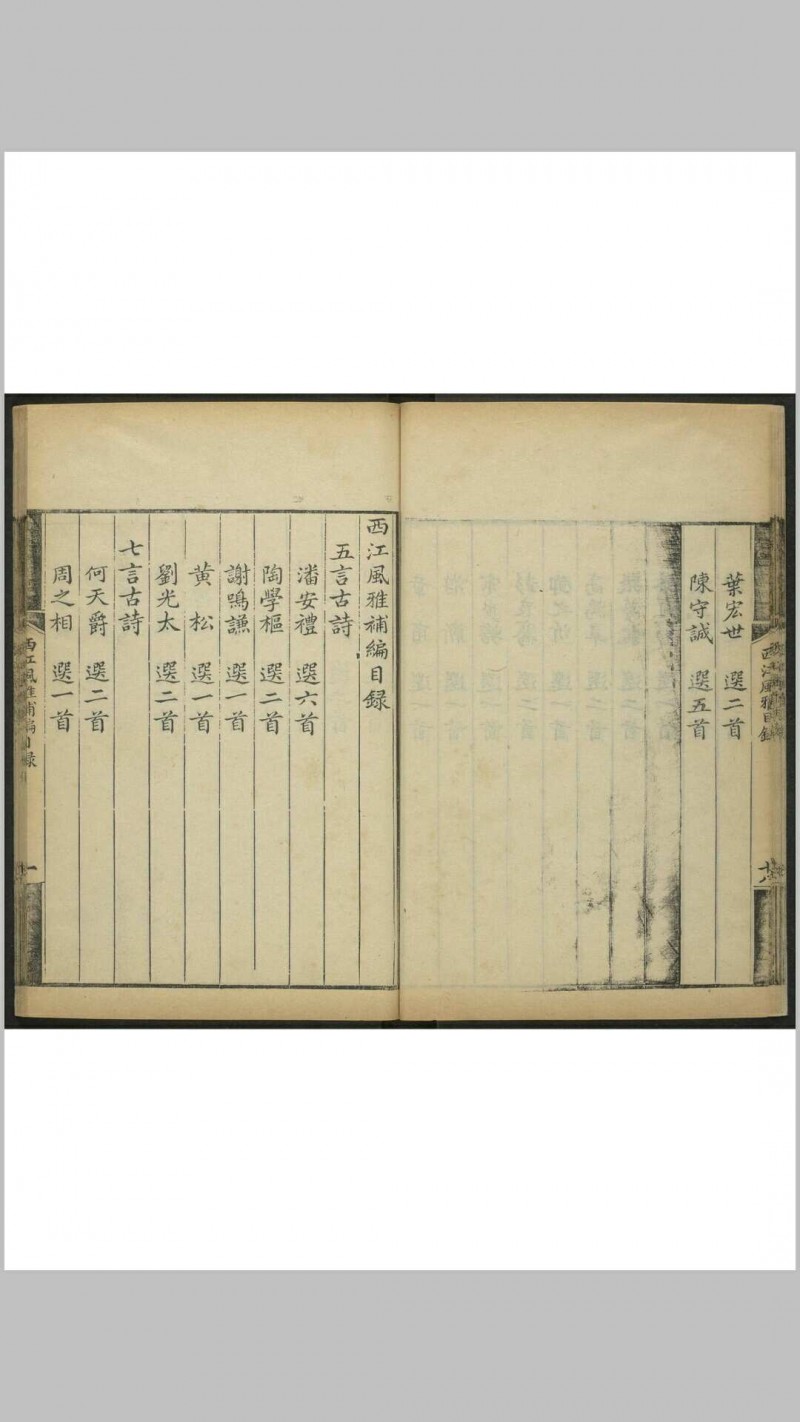 葉宏世　選二首
陳守誠　選五首
西江風雅目錄
西江風雅補編目録
五言古詩
潘安禮　選六首
陶學樞　選二首
謝鳴謙　選一首
黄松　選一首
劉光太　選二首
七言古詩
何天爵　選二首
周之相　選一首
西江風雅補編目錄
一